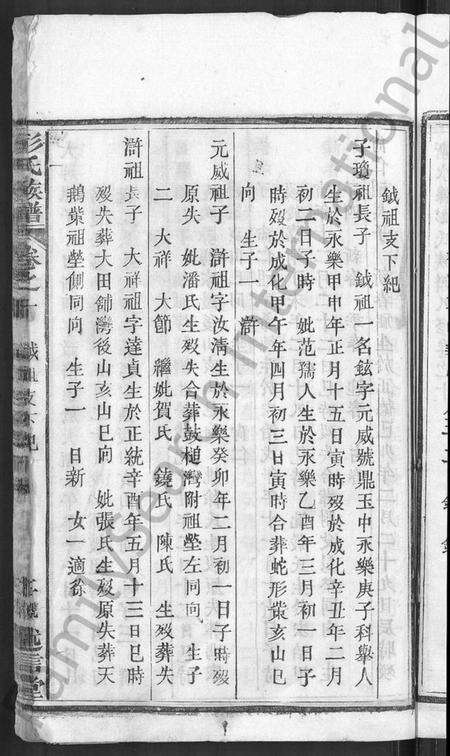 鉞祖支下紀
子瓊祖長子 鉞祖一名鉉字元威號鼎玉中永樂庚子科舉人
生於永樂甲申年正月十五日寅時歿於成化辛丑年二月
初二日子時 妣范孺人生於永樂乙酉年三月初一日子
時歿於成化甲午年四月初三日寅時合葬蛇形嵐亥山巳
向 生子一 滸
元威祖子 滸祖字汝淸生於永樂癸卯年二月初一日子時歿
原失 妣潘氏生歿失合葬鼓槌灣附祖塋左同向 生子
二 大祥 大節 繼妣賀氏 鐃氏 陳氏 生歿葬失
滸祖長子 大祥祖字達貞生於正統辛酉年五月十三日巳時
歿失葬大田舖灣後山亥山巳向 妣張氏生歿原失葬天
鵝嶪祖塋側同向 生子一 日新 女一適徐
彭氏族譜 卷之
鉞祖支下紀
述信堂
FamilySearch International